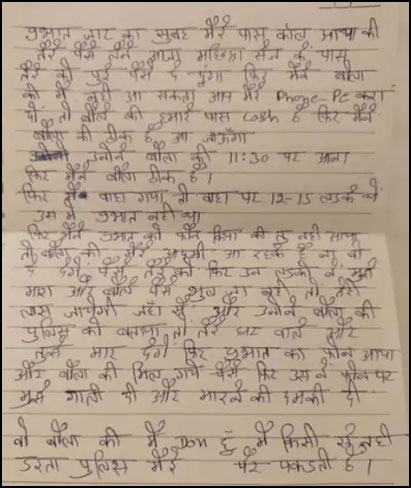 प्रभात जाट का सुबह मेरे पास कॉल आया की
तेरे पैसे लेने आजा महिन्द्रा सेज के पास
तेरे को पुरे पैसे दे दुंगा फिर मैने बोला
की मैं नही आ सकता आप मेरे Phone-Pe करा
दो तो बोले की हमारे पास Cash है फिर मैने
बोला की ठीक है आ जाऊँगा
उनोने बोला की 11:30 पर आना
फिर मैने बोला ठीक है।
फिर मैं वाघा गया तो वाघा पर 12-15 लडके थे
उस मे प्रभात नही था
फिर मैने प्रभात को फोन किया की तु नही आया
तो बोला की मेरे आदमी आ रहके है ना वो
दे देगे पैसे तेरे को फिर उन लडको ने मुझे
मारा और बोले पैसे भुल जा नही तो तेरी
लास जायेगी जहाँ से और उनोने बोला की
पुलिस को बताया तो तेरे घर वाले और
तुझे मार देगे फिर प्रभात का फोन आया
और बोला की मिल गये पैसे फिर उस ने फोन पर
मुझे गाली दी और मारने की धमकी दी
वो बोला की मैं Don हुँ मैं किसी से नही
डरता पुलिस मेरे पैर पकडती है।